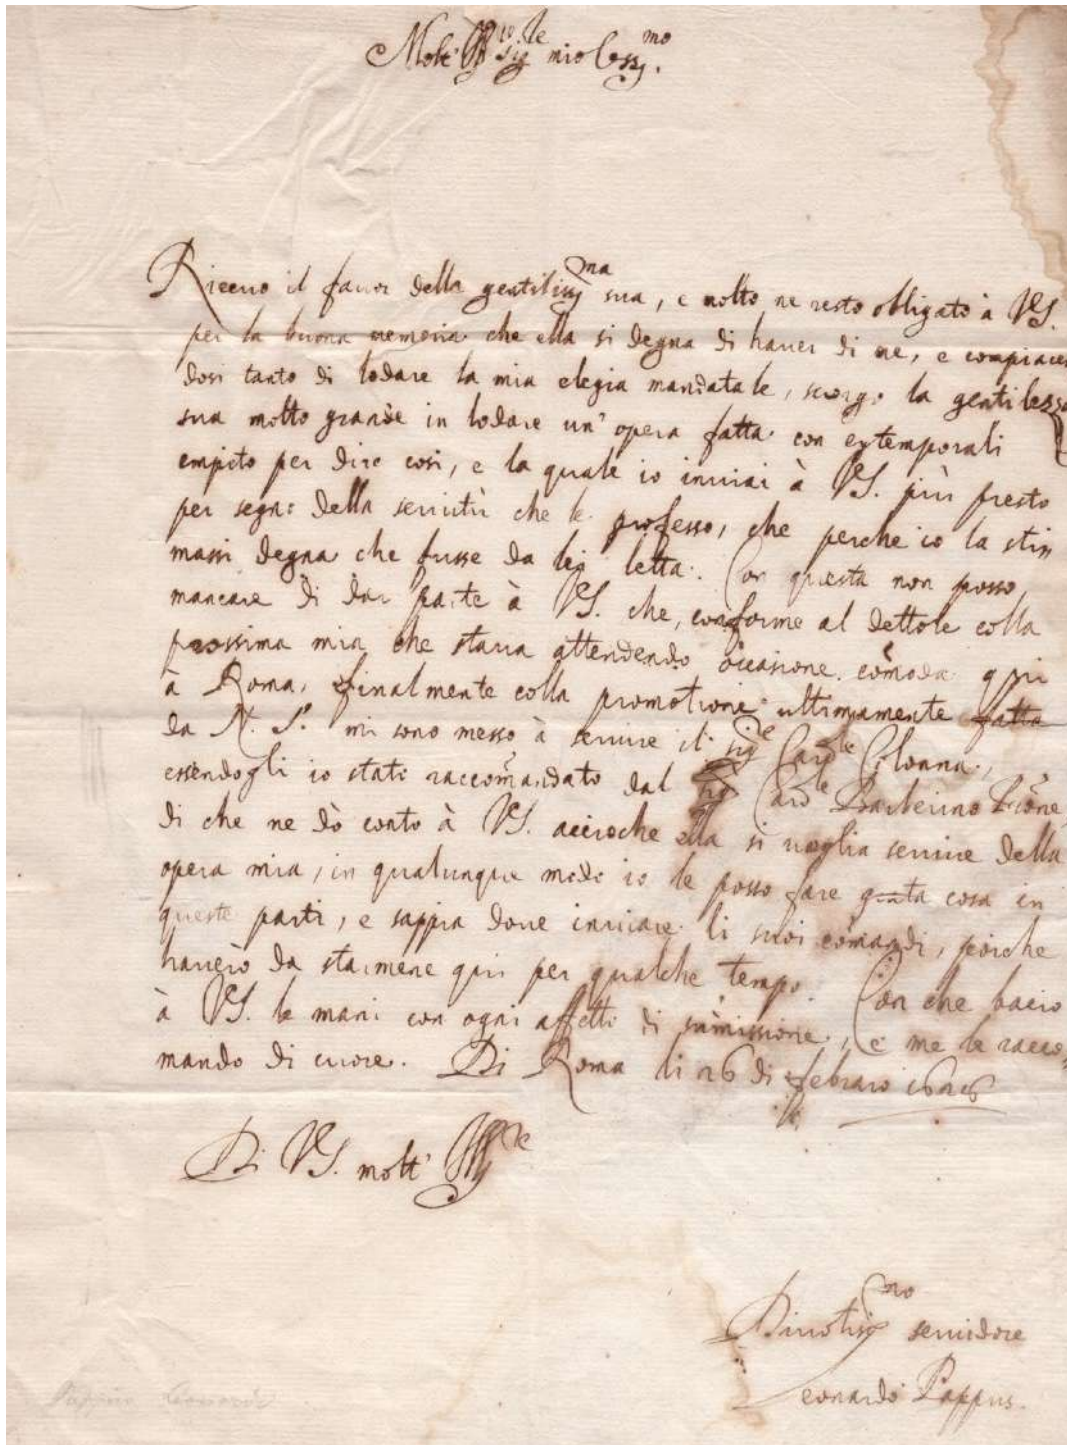 Molt Ill.re Sig.re mio Oss.mo
Riceuo il fauor della gentiliss.ma sua, e molto ne resto obligato à VS.
per la buona memoria che ella si degna di hauer di me, e compiacen
dosi tanto di lodare la mia elegia mandatale, scorgo la gentilezza
sua molto grande in lodare un' opera fatta con extemporali
empito per dire cosi, e la quale io inuiai à VS. più presto
per segno della seruitù che le professo, che perche io la stim
massi degna che fusse da lei letta. Con questa non posso
mancare di dar parte à VS. che, conforme al dettole colla
prossima mia che staua attendendo occasione cõmoda qui
à Roma, finalmente colla promotione ultimamente fatta
da N. S.re mi sono messo à seruire il sig.re Card.le Colonna,
essendogli io stato raccõmandato dal sig.re Card.le Barberino Prõne,
di che ne dò conto à VS. accioche ella si uoglia seruire della
opera mia, in qualunque modo io le posso fare grata cosa in
queste parti, e sappia doue inuiare li suoi cõmandi, poiche
hauerò da starmene qui per qualche tempo. Con che bacio
à VS. le mani con ogni affetto di sũmissione, e me le racco-
mando di cuore. Di Roma li 26 di febraro 1626
Di VS. molt' Ill.re
Diuotiss.mo seruidore
Leonardo Pappus.